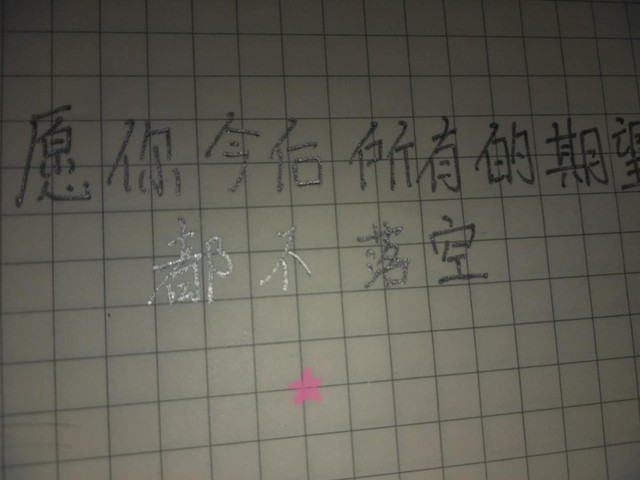 愿你今后所有的期望
都不落空